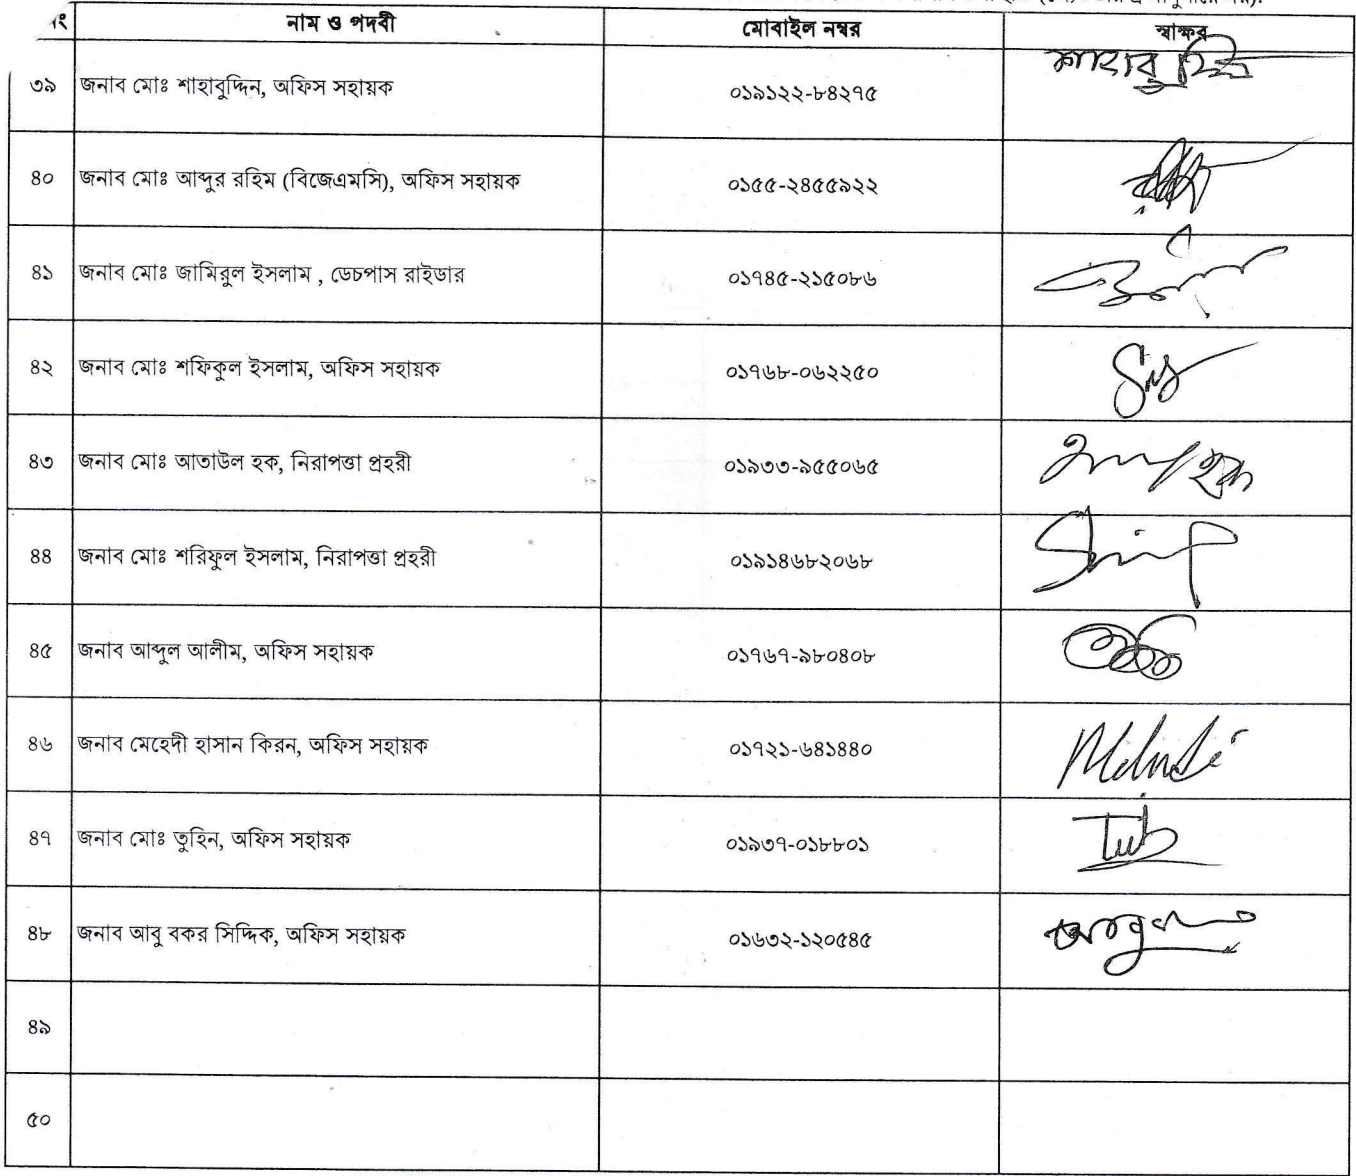 নাম ও পদবী মোবাইল নম্বর স্বাক্ষর
৩৯ জনাব মোঃ শাহাবুদ্দিন, অফিস সহায়ক ০১৯১২২-৮৪২৭৫ শাহাবুদ্দিন
৪০ জনাব মোঃ আব্দুর রহিম (বিজেএমসি), অফিস সহায়ক ০১৫৫-২৪৫৫৯২২
৪১ জনাব মোঃ জামিরুল ইসলাম , ডেচপাস রাইডার ০১৭৪৫-২১৫০৮৬
৪২ জনাব মোঃ শফিকুল ইসলাম, অফিস সহায়ক ০১৭৬৮-০৬২২৫০
৪৩ জনাব মোঃ আতাউল হক, নিরাপত্তা প্রহরী ০১৯৩৩-৯৫৫০৬৫
৪৪ জনাব মোঃ শরিফুল ইসলাম, নিরাপত্তা প্রহরী ০১৯১৪৬৮২০৬৮
৪৫ জনাব আব্দুল আলীম, অফিস সহায়ক ০১৭৬৭-৯৮০৪০৮
৪৬ জনাব মেহেদী হাসান কিরন, অফিস সহায়ক ০১৭২১-৬৪১৪৪০
৪৭ জনাব মোঃ তুহিন, অফিস সহায়ক ০১৯৩৭-০১৮৮০১
৪৮ জনাব আবু বকর সিদ্দিক, অফিস সহায়ক ০১৬৩২-১২০৫৪৫
৪৯
৫০